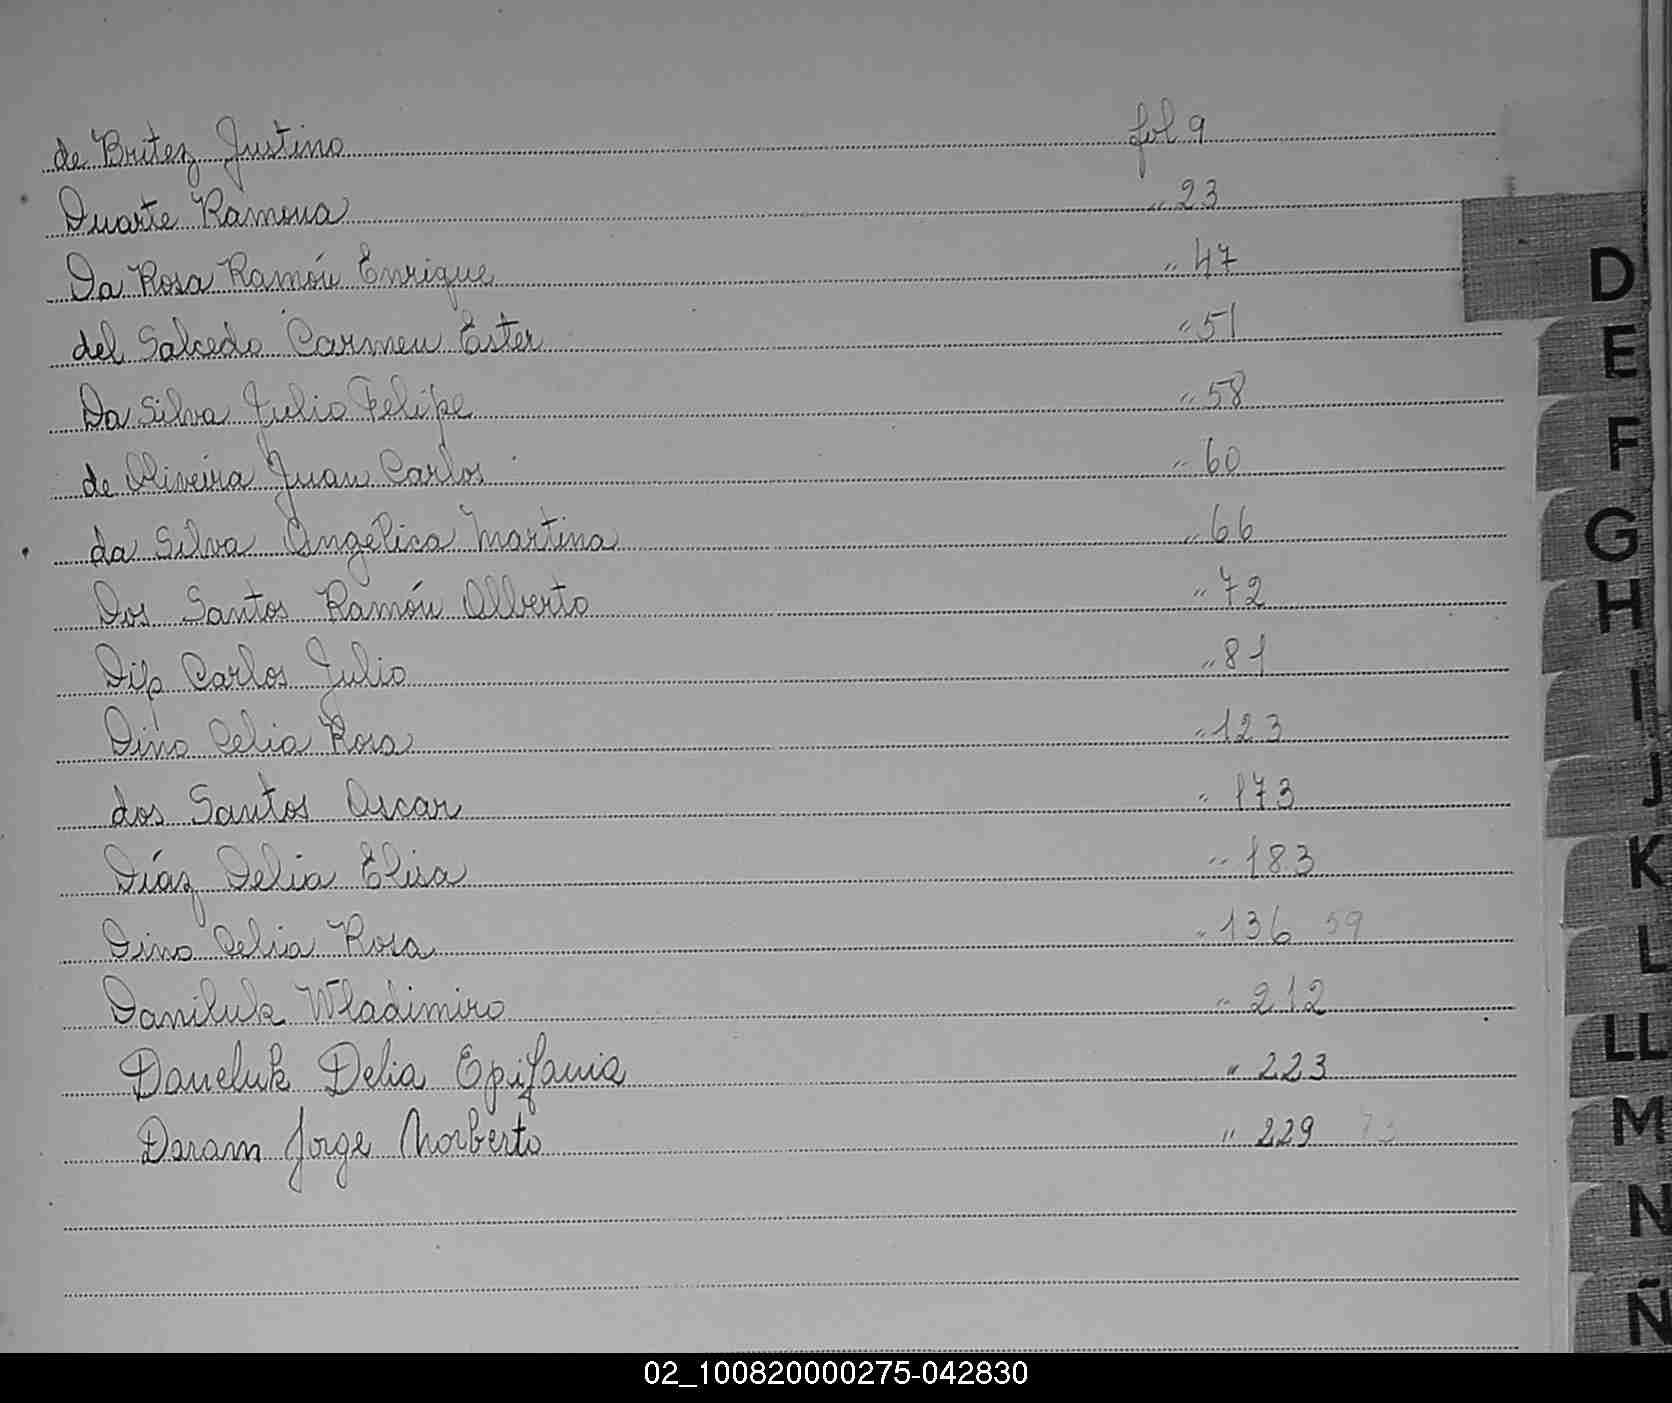 de Britez Justino fol 9
Duarte Ramona " 23
Da Rosa Ramón Enrique " 47
del Salcedo Carmen Ester " 51
Da Silva Julio Felipe " 58
de Oliveira Juan Carlos " 60
da Silva Angélica Martina " 66
Dos Santos Ramón Alberto " 72
Dip Carlos Julio " 81
Dino Celia Rosa " 123
dos Santos Oscar " 173
Díaz Delia Elisa " 183
Dino Celia Rosa " 136 59
Daniluk Wladimiro " 212
Daneluk Delia Epifania " 223
Daram Jorge Norberto " 229 73
D
E
F
G
H
I
J
K
L
LL
M
N
Ñ
02_100820000275-042830